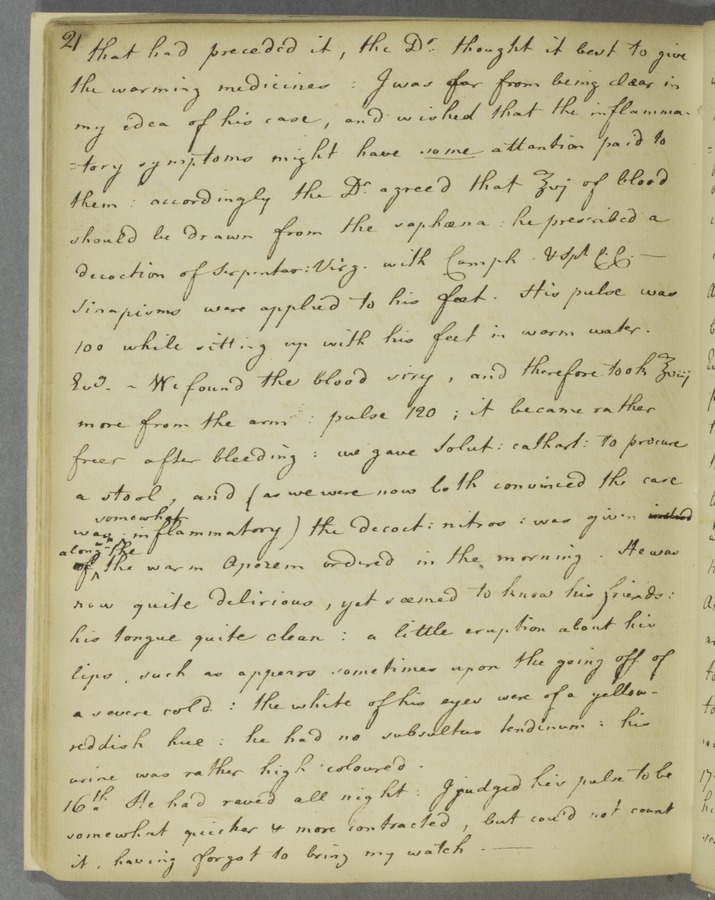 21
that had preceded it, the Dr. thought it best to give
the warming medicines : I was far from being clear in
my idea of his case, and wished that the inflamma-
=tory symptoms might have some attention paid to
them : accordingly the Dr. agreed that ʒvj of blood
should be drawn from the saphæna : he prescribed a
decoction of Serpentar: Virg. with Camph. & Spt. C.C. —
Sinapisms were applied to his feet. His pulse was
100 while sitting up with his feet in warm water.
Evg. - We found the blood sizy, and therefore took
more from the arm : pulse 120 ; it became rather
freer after bleeding : we gave Solut: cathart: to procure
a stool, and (as we were now both convinced the case
somewhat
was inflammatory) the decoct: nitros : was given instead
along the
of the warm Apozem ordered in the morning. He was
now quite delirious, yet seemed to know his friends :
his tongue quite clean : a little eruption about his
lips, such as appears sometimes upon the going off of
a severe cold : the white of his eyes were of a yellow-
reddish hue : he had no subsultus tendinum : his
urine was rather high coloured.
16th He had raved all night : I judged his pulse to be
somewhat quicker & more contracted, but cou'd not count
it, having forgot to bring my watch. —